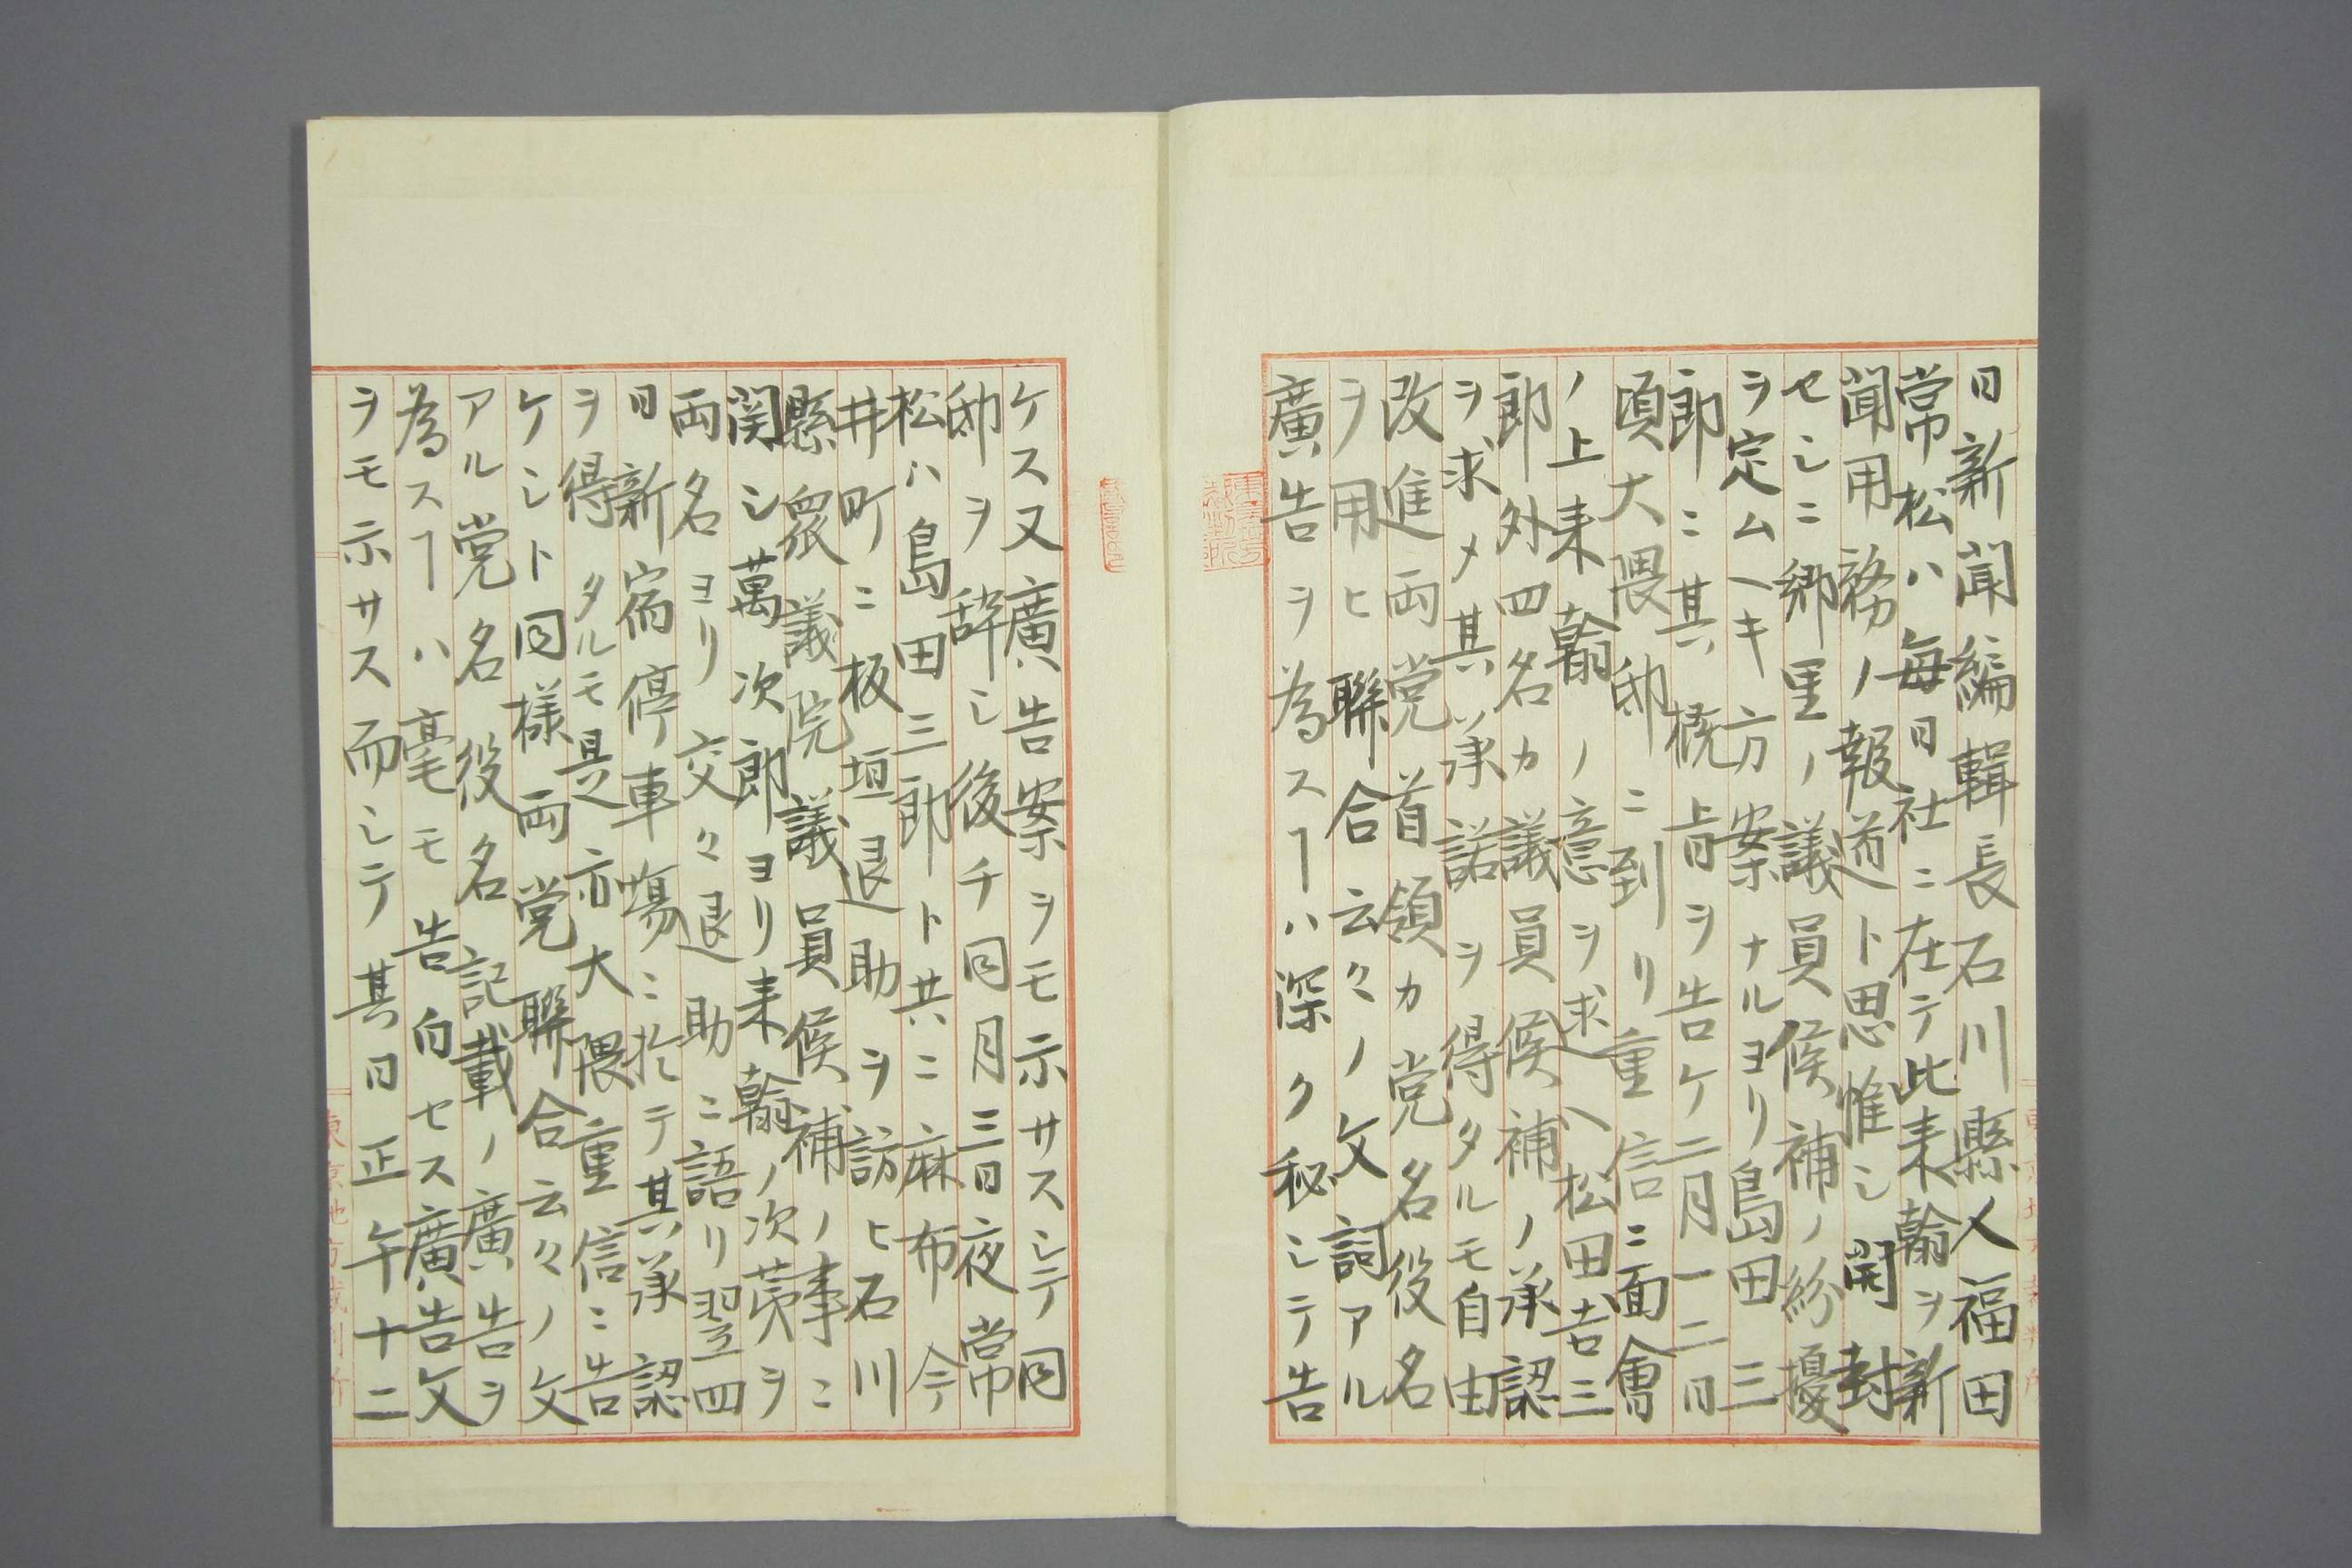 日新聞編輯長石川縣人福田
常松ハ毎日社ニ在テ此来翰ヲ新
聞用務ノ報道ト思惟シ開封
セシニ郷里ノ議員候補ノ紛擾
ヲ定ムヘキ方案ナルヨリ島田三
郎ニ其概旨ヲ告ケ二月一二日
頃大隈邸ニ到リ重信ニ面會
ノ上来翰ノ意ヲ述ヘ松田吉三
郎外四名カ議員候補ノ承認
ヲ求メ其承諾ヲ得タルモ自由
改進両党首領カ党名役名
ヲ用ヒ聯合云々ノ文詞アル
廣告ヲ為スヿハ深ク秘シテ告
ケス又廣告案ヲモ示サスシテ同
邸ヲ辞シ後チ同月三日夜常
松ハ島田三郎ト共ニ麻布今
井町ニ板垣退助ヲ訪ヒ石川
縣衆議院議員候補ノ事ニ
関シ萬次郎ヨリ来翰ノ次第ヲ
両名ヨリ交々退助ニ語リ翌四
日新宿停車場ニ於テ其承認
ヲ得タルモ是亦大隈重信ニ告
ケシト同様両党聯合云々ノ文
アル党名役名記載ノ廣告ヲ
為スヿハ毫モ告白セス廣告文
ヲモ示サス而シテ其日正午十二